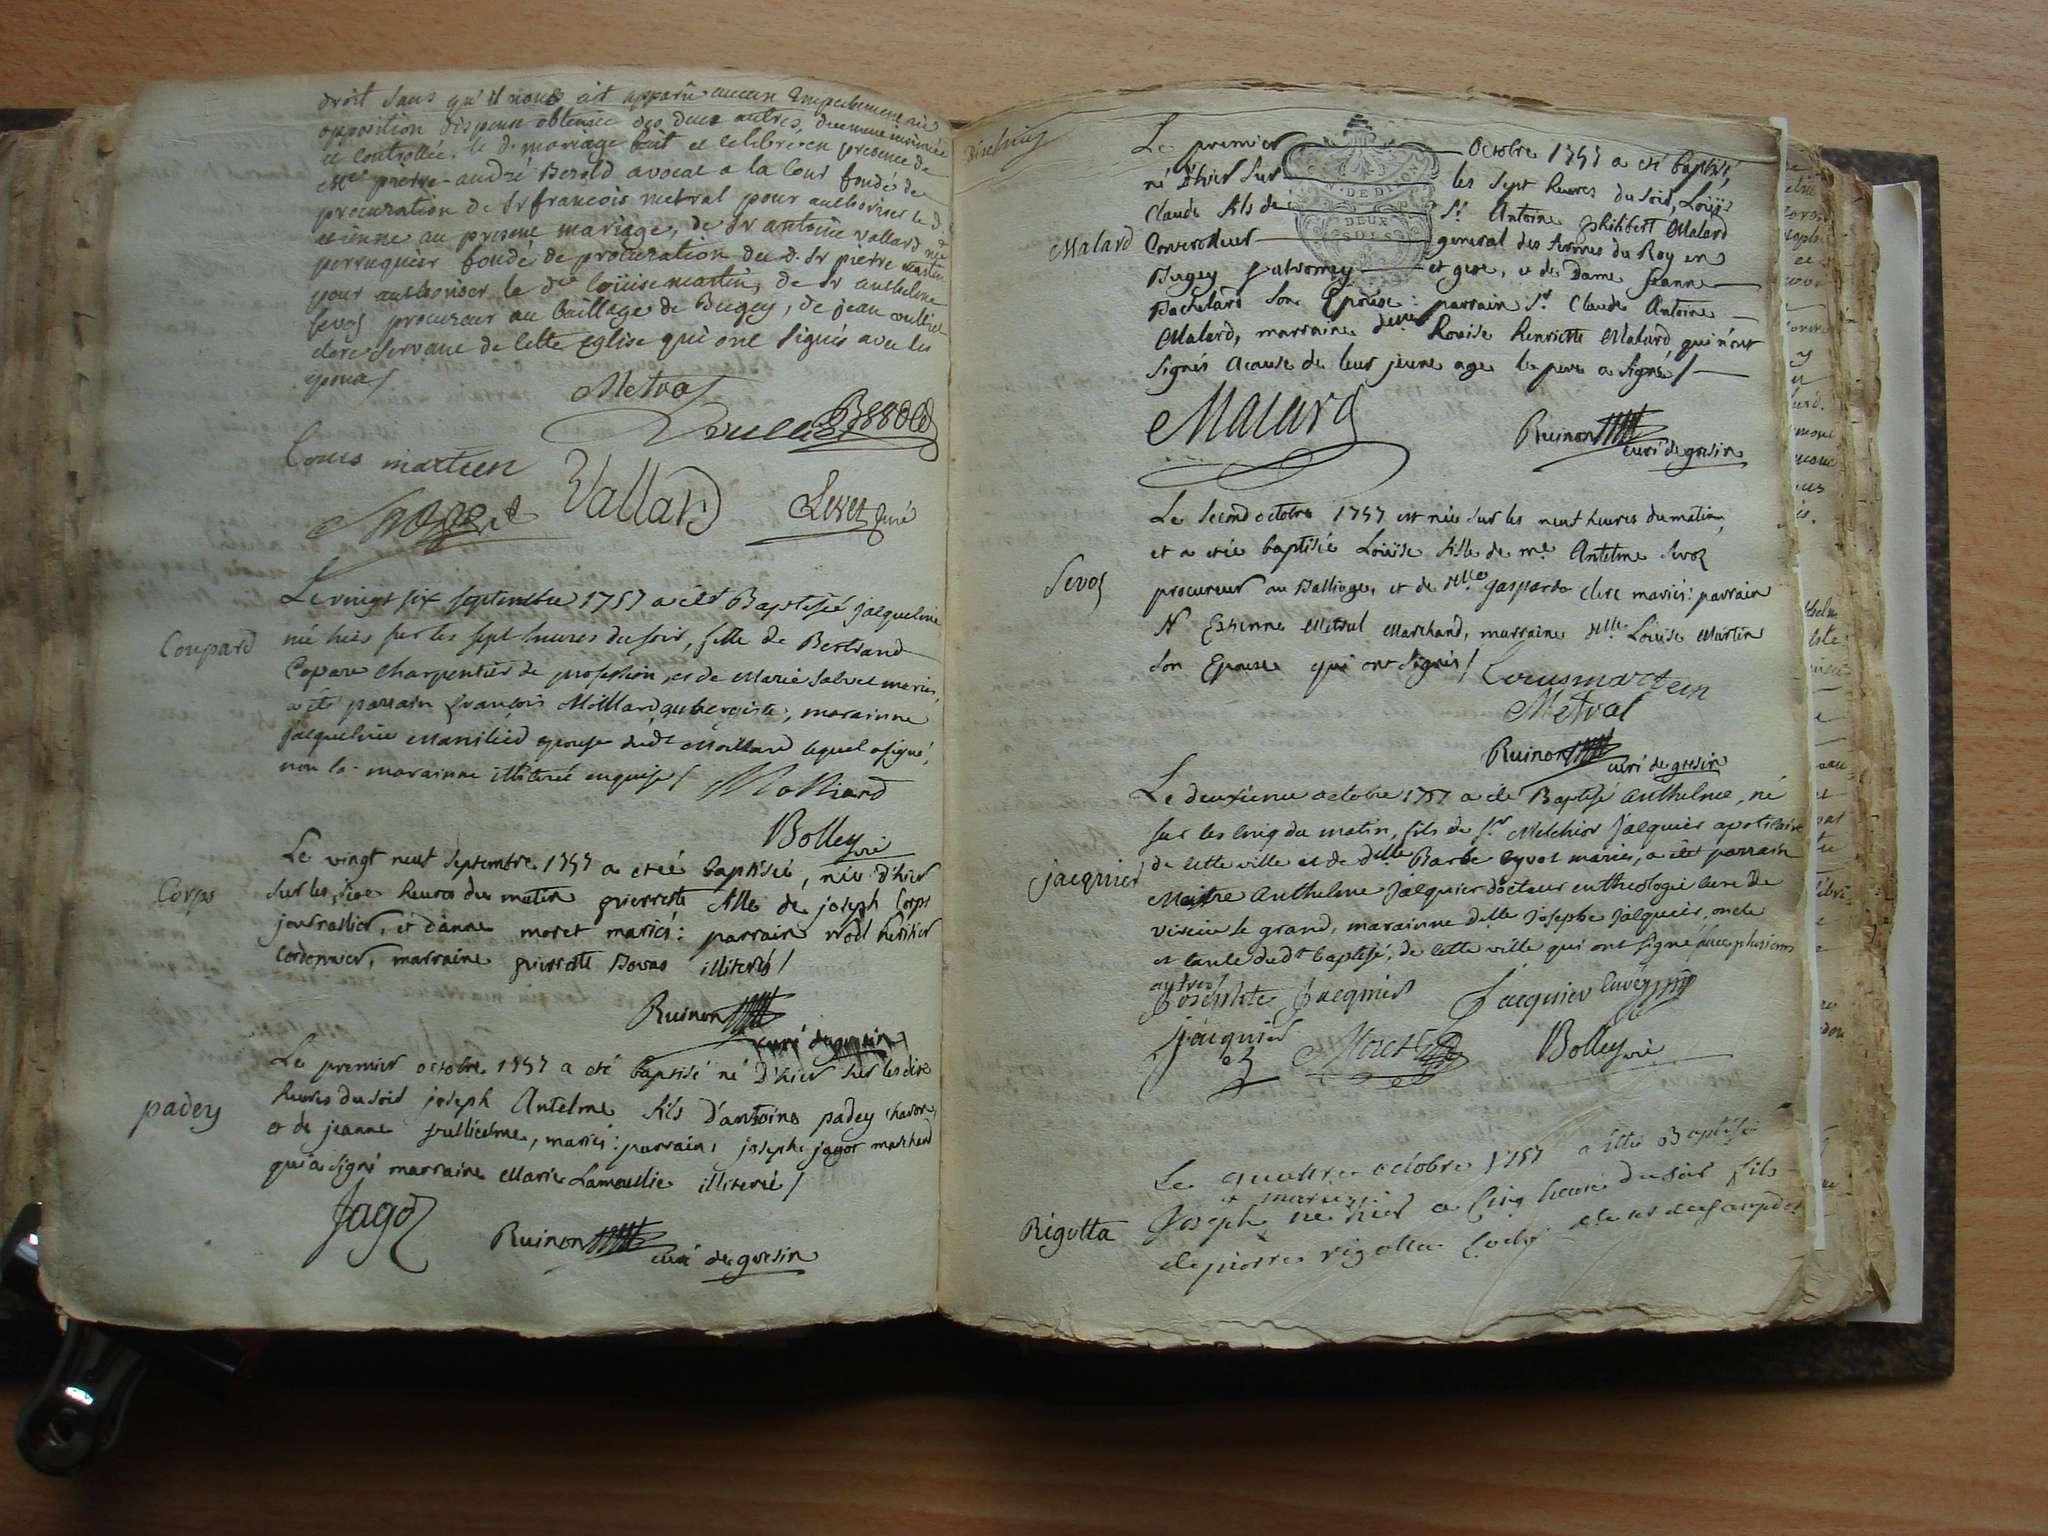 droit sans qu'il nous ait apparu aucun Empechement ni
opposition dispense obtenue des deux autres, duement insinuée
et Controllée, le d. mariage fait et celebré en presence de
Me pierre-andré Berold avocat a la Cour fondé de
procuration de Sr francois metral pour authoriser le d.
etienne au present mariage, de Sr antoine vallard me
perruquier fondé de procuration du d. Sr pierre martin
pour authoriser le dlle loüise martin, de Sr anthelme
sevoz procureur au bailliage de Bugey, de jean
clerc servant de cette eglise qui ont signés avec les
epoux /.
Metral
Louis martein
Vallard
curé
Coupard
Le vingt six septembre 1757 a eté Baptisée jacqueline
née hier sur les sept heures du soir, fille de Bertrand
Copare charpentier de profession, et de Marie Salvet mariés,
a été parrain françois Molliard aubergiste, marainne
jacqueline epouse dudt Molliard lequel a signé,
non la marainne illiterée enquise /
Molliard
Bolley vic
Corps
Le vingt neuf Septembre 1757 a etée baptisée, née d'hier
sur les heures du matin pierrette fille de joseph Corps
journallier, et d'anne moret mariés : parrain noël heritier
Cordonnier, marraine pierrette Bovas illiterés /
Ruinon
curé de gresin
padey
Le premier octobre 1757 a eté baptisé né d'hier sur les dix
heures du soir joseph Antelme fils d'antoine padey charon,
et de jeanne vullielme, mariés : parrain, joseph jagot marchand
qui a signé marraine Marie Lamoullie illiterée /
Jagot
Ruinon
curé de gresin
Le premier Octobre 1757 a eté baptisé,
G. DE DIJON
DEUX
SOLS
né d'hier sur les sept heures du soir, Loüis
Claude fils de Sr. Antoine philibert Malard
Malard
Controlleur general des fermes du Roy en
Bugey Valromey et gex, et de Dame Jeanne
Bachelard son Epouse : parrain Sr. Claude Antoine
Malard, marraine delle Louise henriette Malard, qui n'ont
signés acause de leur jeune age le pere a signé /
Malard
Ruinon
curé de gresin
Le second octobre 1757 est née sur les neuf heures du matin,
et a etée baptisée Loüise fille de me Antelme Sevoz
Sevoz
procureur au Balliage, et de dlle gasparde clerc mariés : parrain
Sr Estienne Metral Marchand, marraine dlle Louise Martin
son Epouse qui ont signés /
Louis martein
Metral
Ruinon
curé de gresin
Le deuxieme octobre 1757 a eté Baptisé anthelme, né
sur les cinq du matin, fils de Sr Melchior Jacquier apoticaire
de cette ville et de dlle Barbe cyvot mariés, a eté parrain
jacquier
Maitre anthelme Jacquier docteur en theologie curé de
virieu le grand, marainne dlle josephe jacquier, oncle
et tante dudt baptisé, de cette ville qui ont signé avec plusieurs
autres /
Josephte Jacquier
Jacquier curé
jacquier
Bolley vic
Le quattre octobre 1757 a etté Baptisé
Joseph marie né hier a cinq heure du soir fils
Rigotta
de pierre rigotta